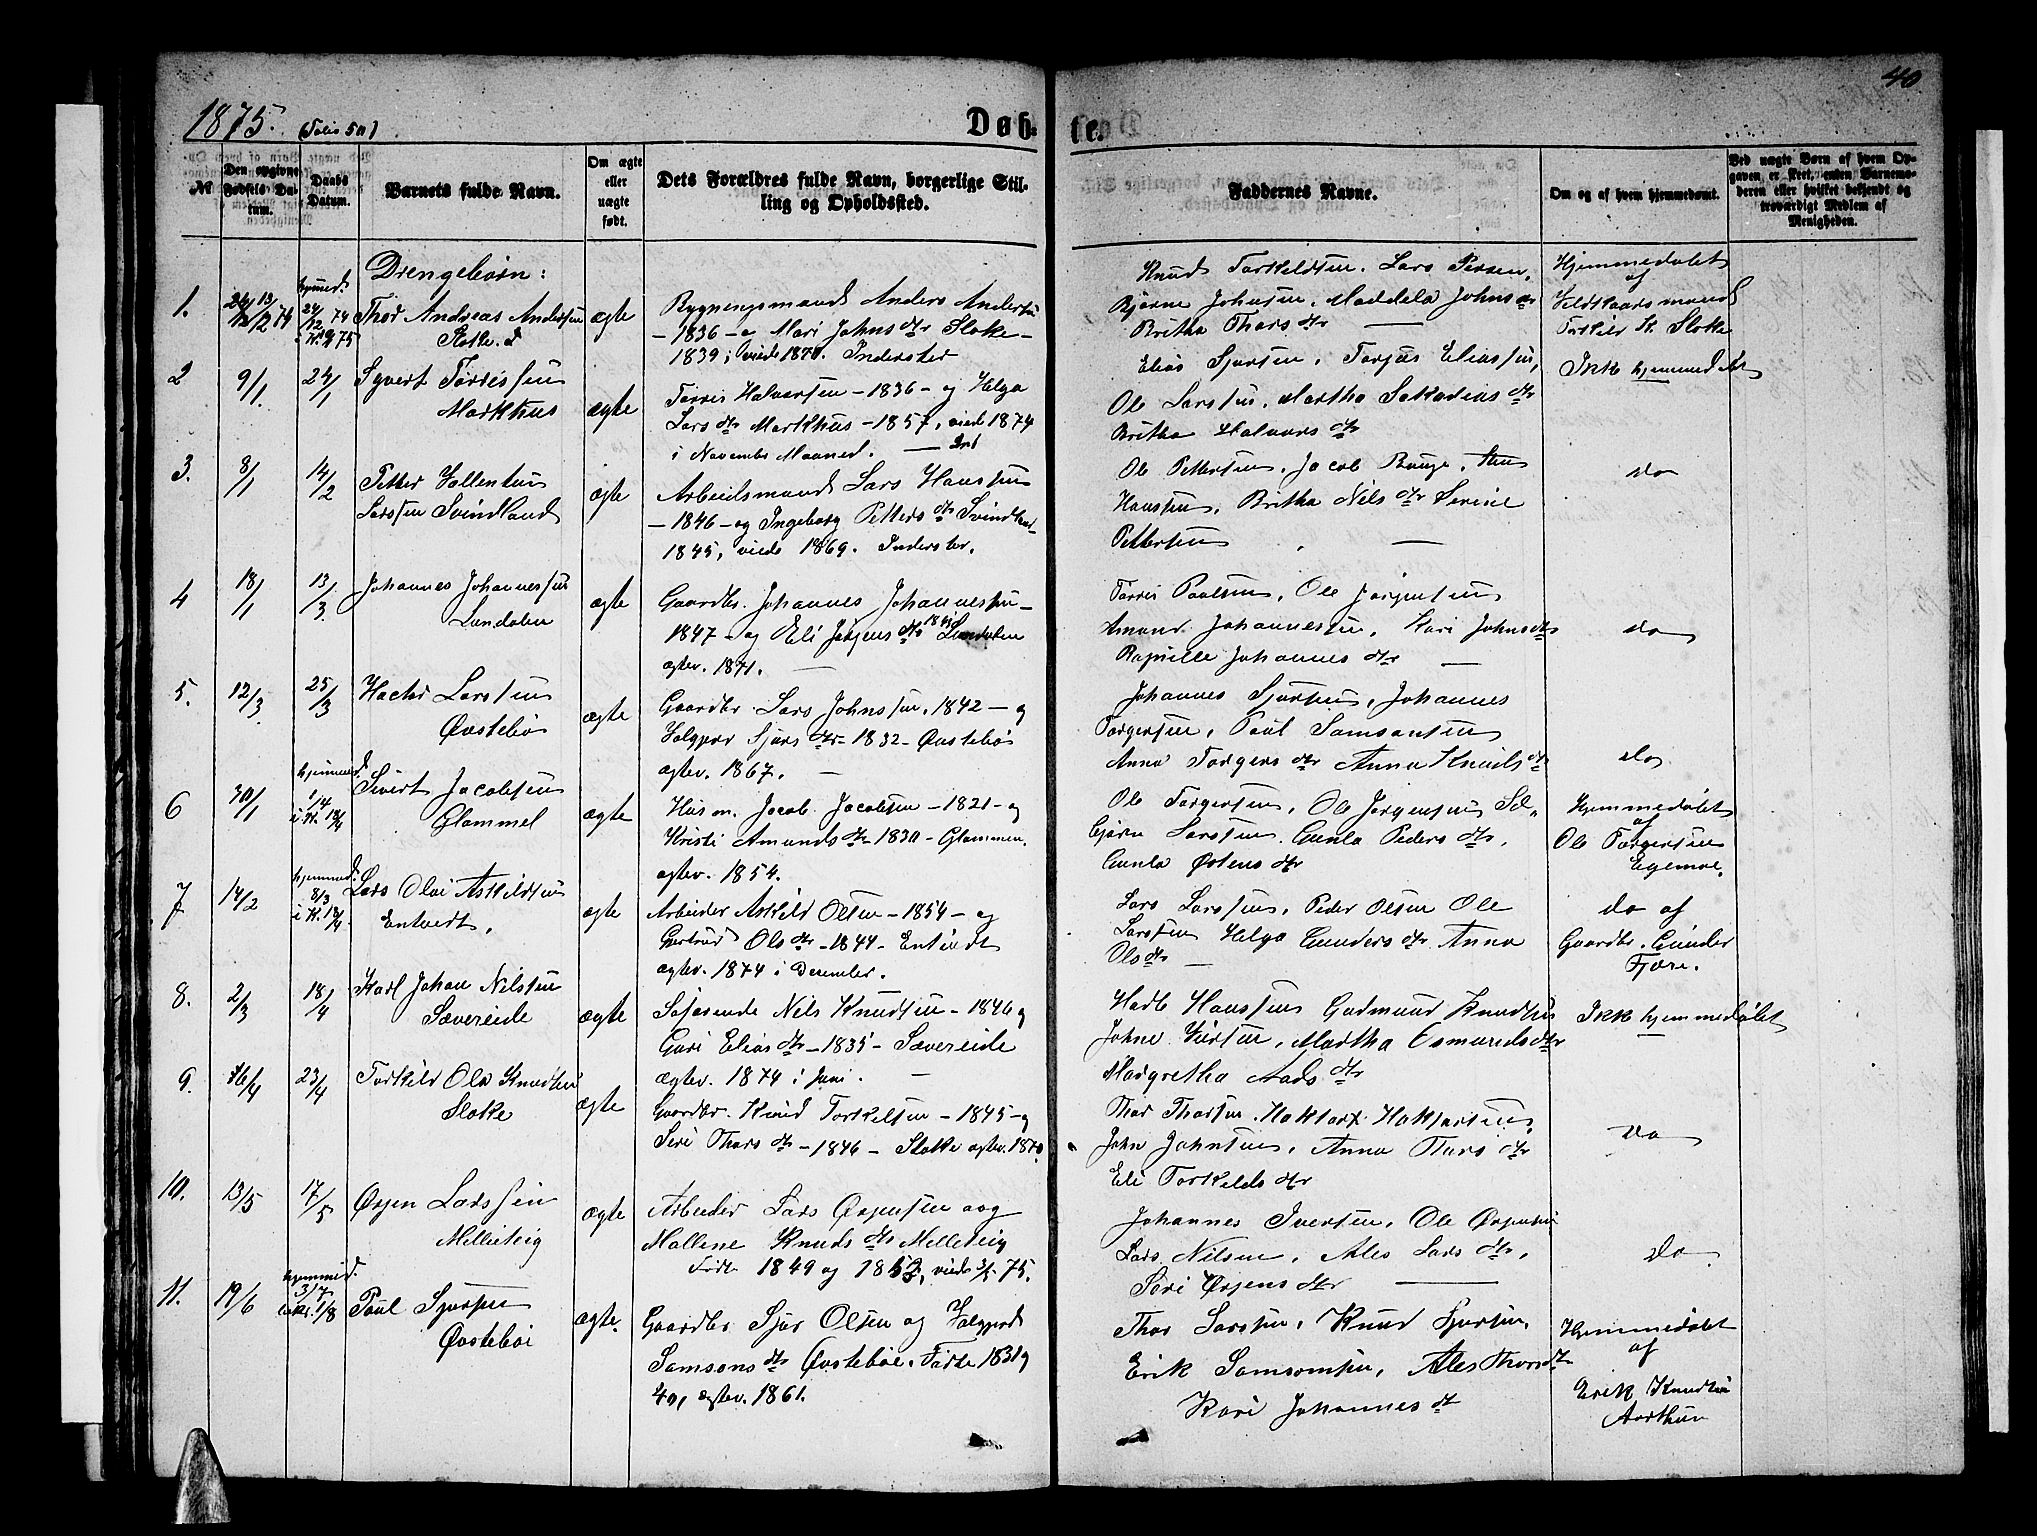 1875. (Folio 50)
Døb-
te.
40
№
Den opgivne Fødsels Datum.
Daabs Datum.
Barnets fulde Navn.
Om ægte eller uægte født.
Dets Forældres fulde Navn, borgerlige Stilling og Opholdssted.
Faddernes Navne.
Om og af hvem hjemmedøbt.
Ved uægte Børn af hvem Opgaven er skeet, enten Barnemoderen eller hvilket bekjendt og troværdigt Medlem af Menigheden.
Drengebørn:
1.
hjemmed.
24/12 74
Thor Andreas Andersen
Sloke
ægte
Bygningsmand Anders Andersen
- 1836 - og Mari Johns dtr Sloke -
1839, viede 1870. Inderster
Knud Torkeldsen. Lars Persen,
Bjørne Johnsen, Maddela Johns dtr
Britha Thors dtr —
Hjemmedøbt
af
Torkild K. Sloke
2
9/1.
24/1
Syvert Tørressen
Markhus
ægte
Tørris Halvorsen - 1836 - og Helga
Lars dtr Markhus - 1857, viede 1874
i November Maaned. —
Elias Sjursen, Torjus Eliassen,
Ole Larssen, Martha Sakarias dtr
Britha Halvors dtr
Ikke hjemmedøbt
3.
8/1
14/2
Petter Vallentin
Larssen Svindland
ægte
Arbeidsmand Lars Hanssen
- 1846 - og Ingeborg Petters dtr Svindland
1845, viede 1869. Inderster.
Ole Pettersen, Jacob Bauge,
Hanssen, Britha Nils dtr Serine
Pettersen —
do
4
18/1
13/3.
Johannes Johannessen
Landalen
ægte
Gaardbr. Johannes Johannessen -
1847 - og Eli Jørgens dtr Landalen
ægtev. 1871. —
Tørris Paulsen, Ole Jørgensen
Amund Johannessen, Kari Johns dtr
Johannes dtr —
do
5.
12/3.
25/3
Hactor Larssen
Øvstebø
ægte
Gaardbr. Lars Johnssen, 1842 - og
Valgjer Sjurs dtr - 1832 - Øvstebø
ægtev. 1867. —
Johannes Sjursen, Johannes
Torgersen, Paul Samsonsen
Anna Torgers dtr Anna Knuds dtr
do
6
30/1
hjemmed.
1/4
i K. 18/4
Sivert Jacobsen
Glammel
ægte
Husm. Jacob Jacobsen - 1821 - og
Kristi Amunds dtr 1830 - Glammen.
ægtev. 1854.
Ole Torgersen, Ole Jørgensen Sel-
bjørn Larssen, Gunla Peders dtr,
Gunla Østens dtr
Hjemmedøbt
af
Ole Torgersen
Egemoe.
7
14/2
hjemmed.
8/3
i K. 18/4
Lars Olai Askildsen
Entvedt,
ægte
Arbeider Askild Olsen - 1854 - og
Gertrud Ols dtr - 1844 - Entvedt
ægtev. 1874 i December.
Lars Larssen, Peder Olsen Ole
Larssen Helga Gunders dtr Anna
Ols dtr —
do af
Gaardbr. Gunder
Fjære.
8.
2/3
18/4
Karl Johan Nilssen
Sævereide
ægte
Søfarende Nils Knudsen - 1846 og
Guri Elias dtr - 1835 - Sævereide
ægtev. 1874 i Juni. —
Hanssen Gudmund Knudsen
Johne Martha Osmunds dtr
Margretha Aads dtr
Ikke hjemmedøbt
9.
16/4
23/4
Torkild Ola Knudsen
Sloke
ægte
Gaardbr. Knud Torkelsen - 1845 - og
Siri Thors dtr - 1846 - Sloke ægtev. 1870.
Thor Thorsen, Haktor Haktorsen,
John Johnsen, Anna Thors dtr
Eli Torkilds dtr
do
10.
13/5
17/5
Ørjen Larssen
Milleteig
ægte
Arbeider Lars Ørjensen og
Mallene Knuds dtr Milleteig
Født 1849 og 1853, viede 75.
Johannes Iversen, Ole Ørjensen
Lars Nilsen, Ales Lars dtr,
Siri Ørjens dtr —
do
11.
19/6
hjemmed.
3/7
1/8
Paul Sjursen
Øvstebøe
ægte.
Gaardbr Sjur Olsen og Valgjerd
Samsons dtr Øvstebøe. Fødte 1831 og
40, ægtev. 1861.
Thor Larssen, Knud Sjursen,
Erik Samsonsen, Ales Thors dtr
Kari Johannes dt
Hjemmedøbt
af
Erik Knudsen
Aarthun